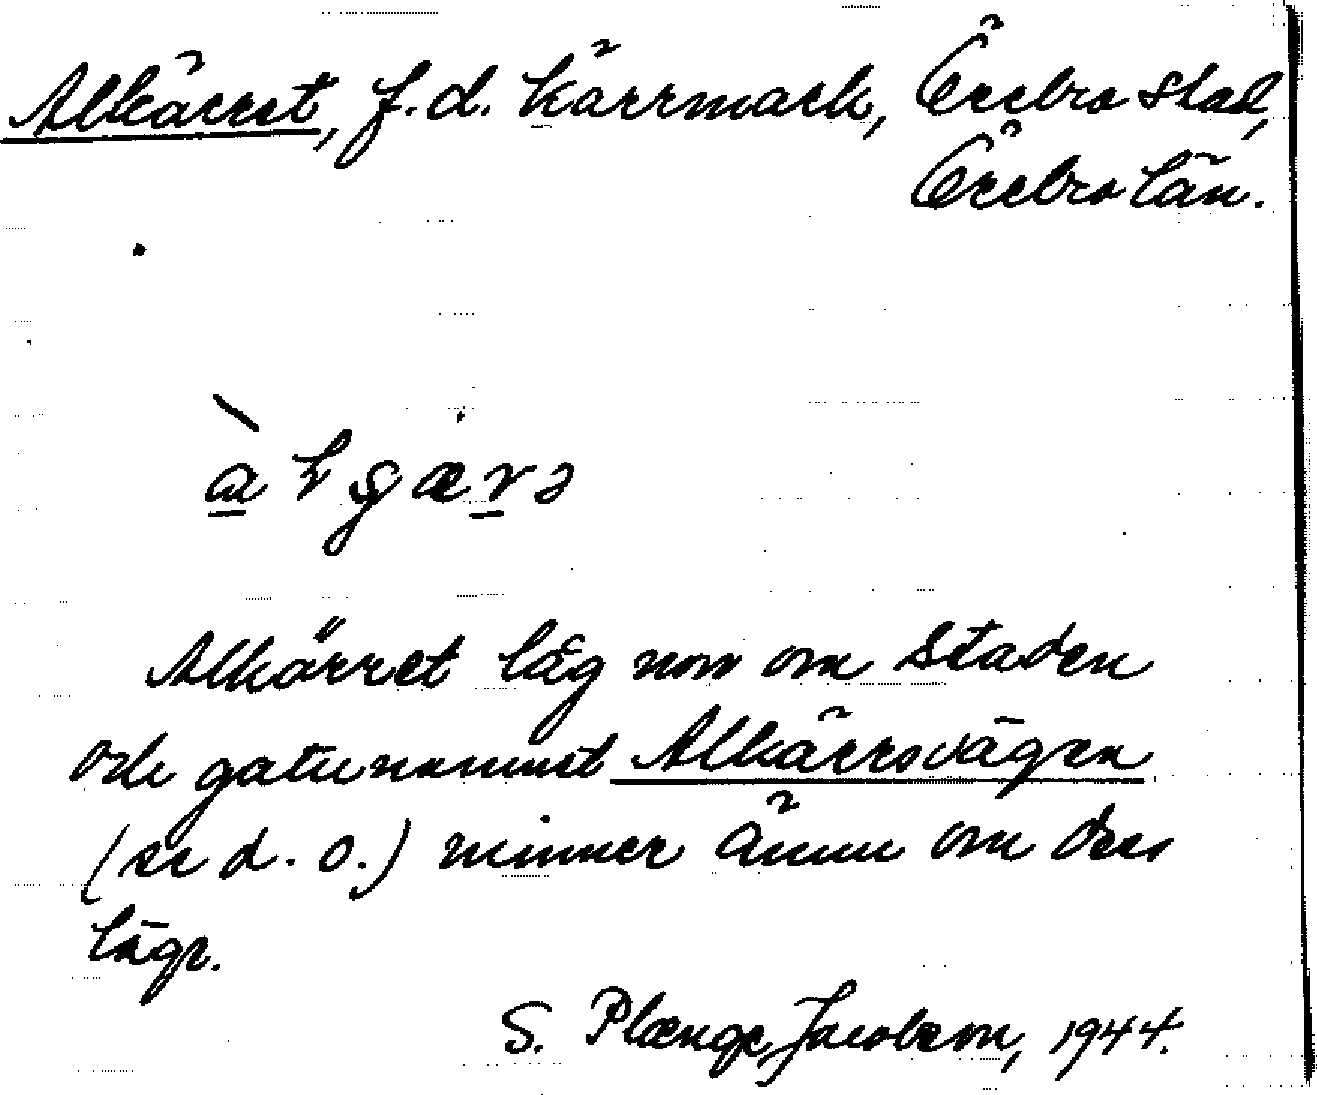 Alkärret, f.d. kärrmark, Örebro stad,
Örebro län.
àlgærə
Alkärret låg norr om staden
och gatunamnet Alkärrsvägen
(se d. o.) minner ännu om dess
läge.
S. Plænge Jacobson, 1944.